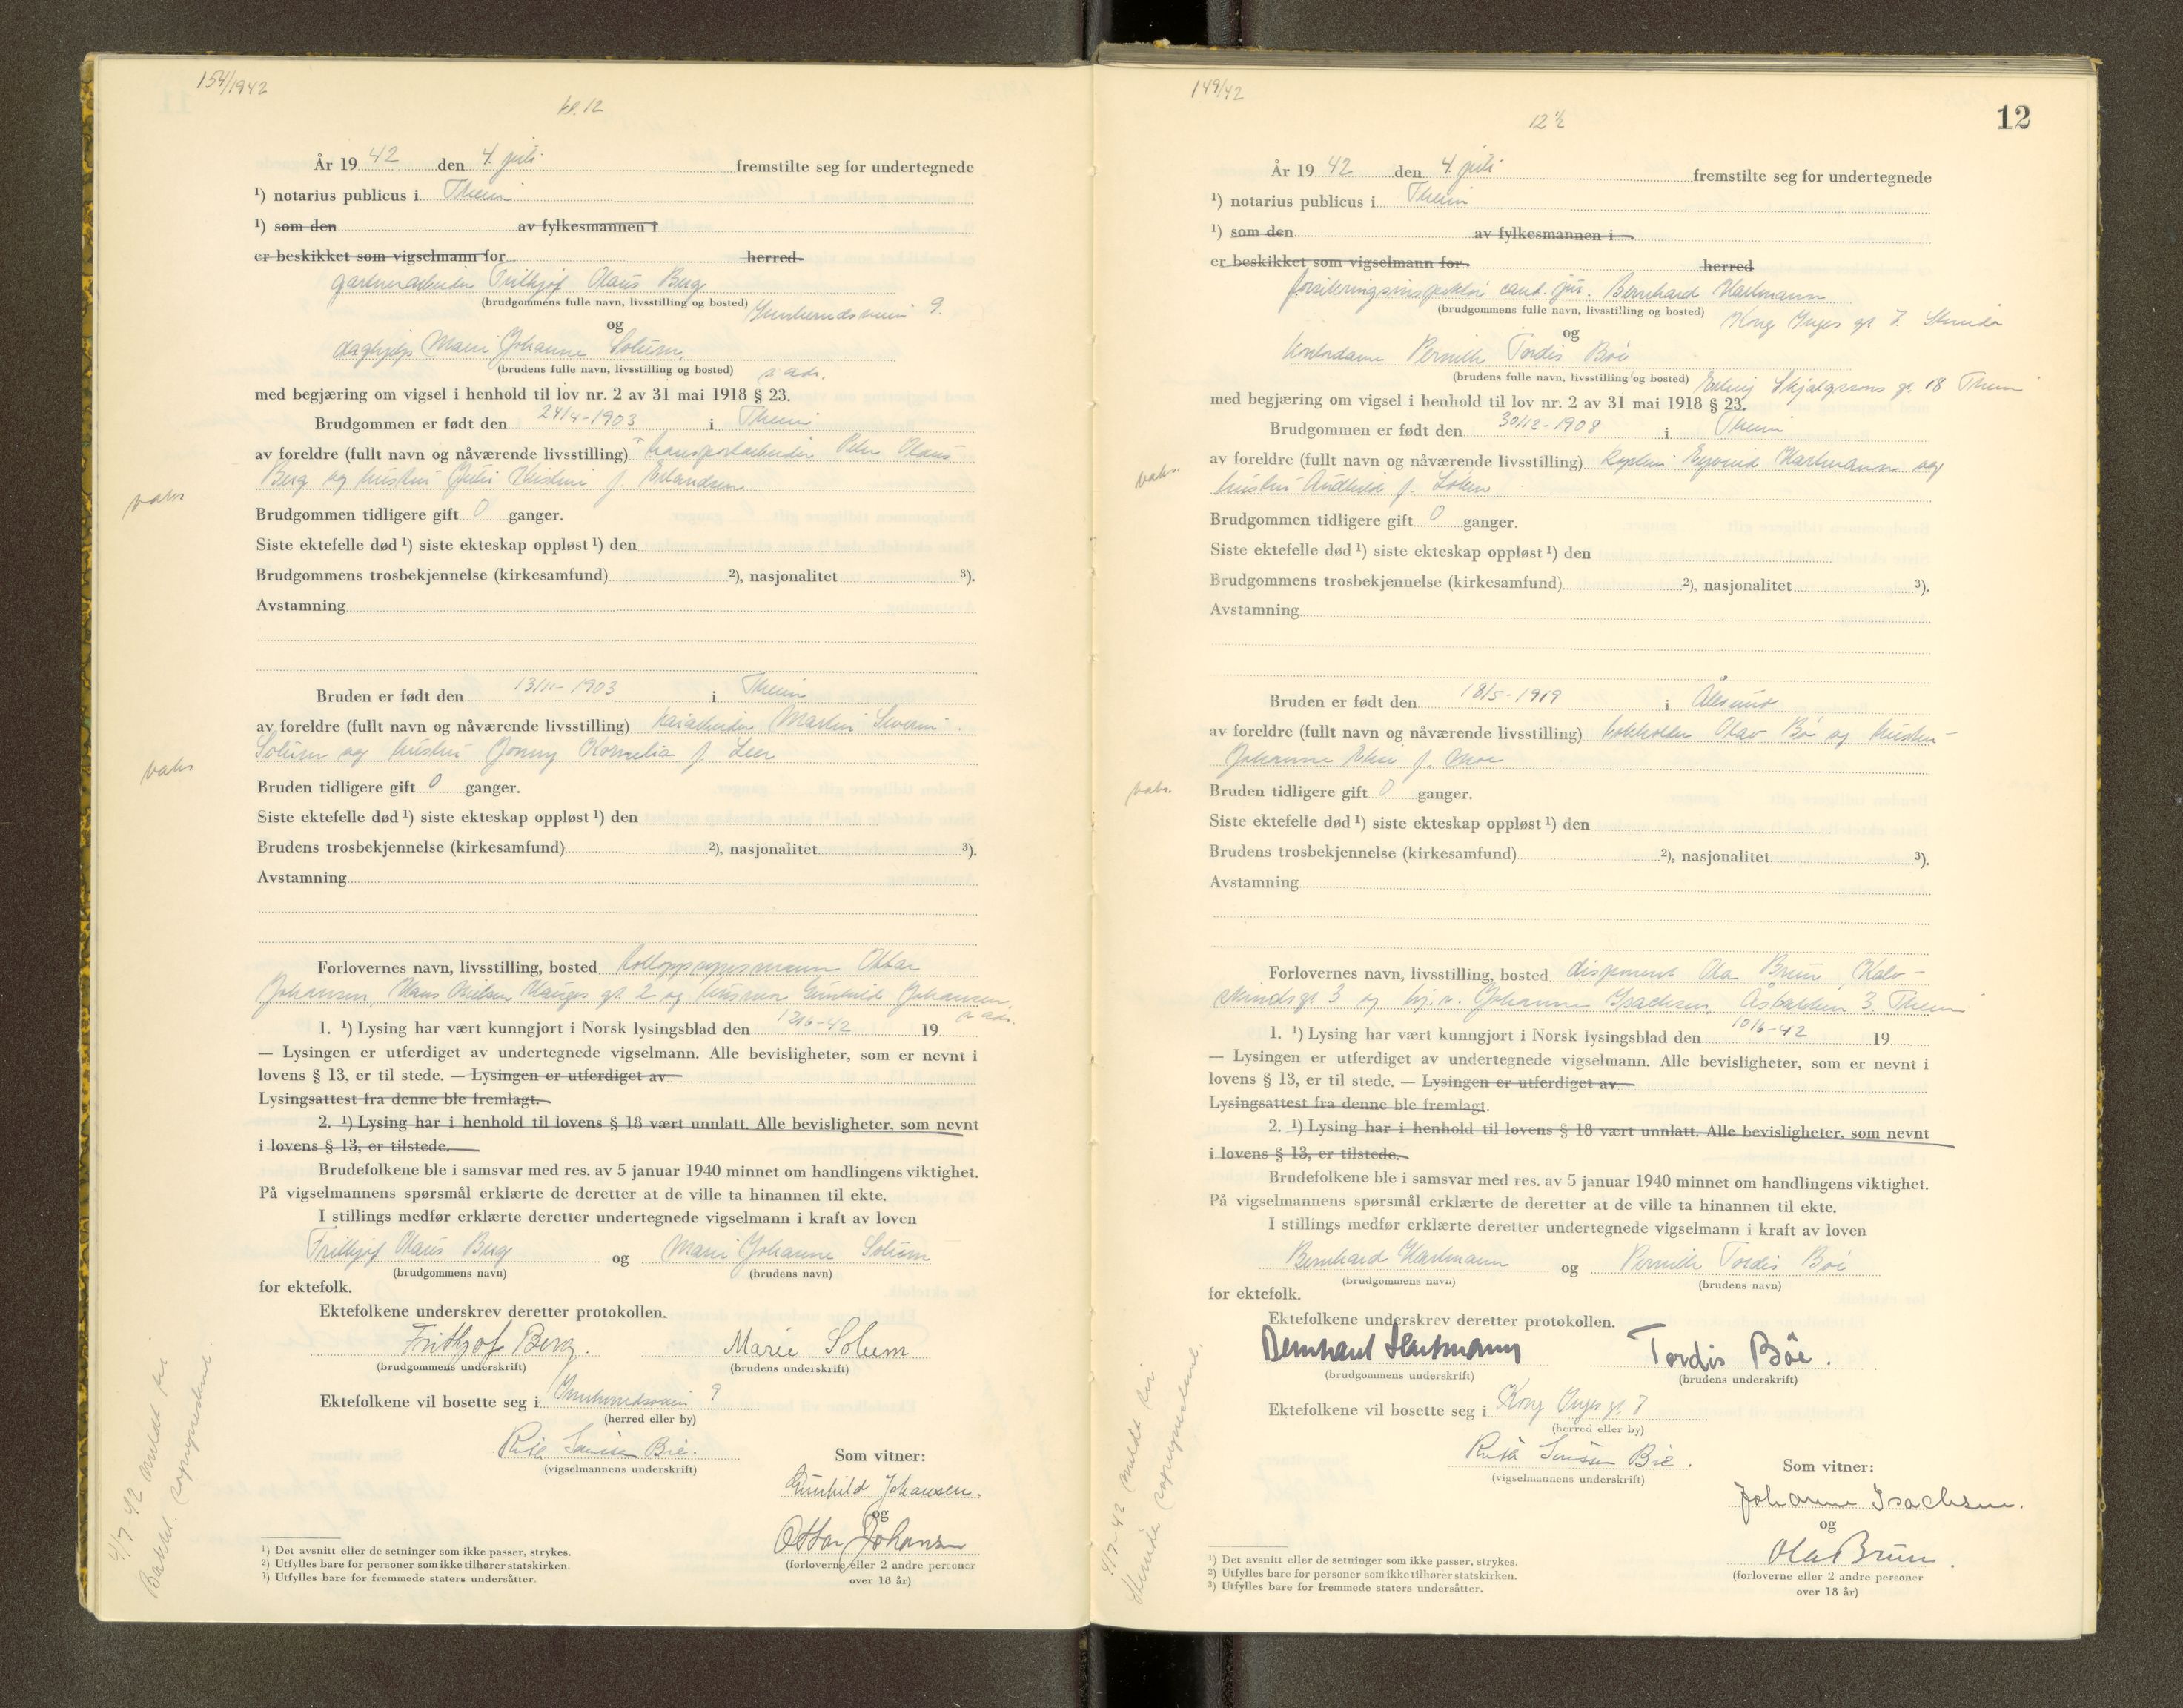 154/1942
kl. 12
År 19 42 den 4. juli fremstilte seg for undertegnede
¹) notarius publicus i Trheim
¹) som den av fylkesmannen i
er beskikket som vigselmann for herred
gartnerarbeider Frithjof Olaus Berg
(brudgommens fulle navn, livsstilling og bosted) Innherredsveien 9.
og
daghjelp Marie Johanne Solum
(brudens fulle navn, livsstilling og bosted) s. adr.
med begjæring om vigsel i henhold til lov nr. 2 av 31 mai 1918 § 23.
Brudgommen er født den 24/4-1903 i Trheim
av foreldre (fullt navn og nåværende livsstilling) transportarbeider Peter Olaus
Berg og hustru Julie Kristine f. Erlandsen
vaks.
Brudgommen tidligere gift 0 ganger.
Siste ektefelle død ¹) siste ekteskap oppløst ¹) den
Brudgommens trosbekjennelse (kirkesamfund) ²), nasjonalitet ³).
Avstamning
Bruden er født den 13/11-1903 i Trheim
av foreldre (fullt navn og nåværende livsstilling) kaiarbeider Martin Severin
Solum og hustru Jonny Kornelia f. Leer
vaks.
Bruden tidligere gift 0 ganger.
Siste ektefelle død ¹) siste ekteskap oppløst ¹) den
Brudens trosbekjennelse (kirkesamfund) ²), nasjonalitet ³).
Avstamning
Forlovernes navn, livsstilling, bosted tolloppsynsmann Ottar
Johansen, Hans Nielsen Hauges gt. 2 og husmor Gunhild Johansen,
s. adr.
1. ¹) Lysing har vært kunngjort i Norsk lysingsblad den 12/6-42 19
— Lysingen er utferdiget av undertegnede vigselmann. Alle bevisligheter, som er nevnt i
lovens § 13, er til stede. — Lysingen er utferdiget av
Lysingsattest fra denne ble fremlagt.
2. ¹) Lysing har i henhold til lovens § 18 vært unnlatt. Alle bevisligheter, som nevnt
i lovens § 13, er tilstede.
Brudefolkene ble i samsvar med res. av 5 januar 1940 minnet om handlingens viktighet.
På vigselmannens spørsmål erklærte de deretter at de ville ta hinannen til ekte.
I stillings medfør erklærte deretter undertegnede vigselmann i kraft av loven
Frithjof Olaus Berg og Marie Johanne Solum
(brudgommens navn) (brudens navn)
for ektefolk.
Ektefolkene underskrev deretter protokollen.
Frithjof Berg. Marie Solum
(brudgommens underskrift) (brudens underskrift)
Ektefolkene vil bosette seg i Innherredsveien 9
(herred eller by)
Ruth Sanssen Bie.
(vigselmannens underskrift)
Som vitner:
Gunhild Johansen.
og
Ottar Johansen
(forloverne eller 2 andre personer
over 18 år)
4/7 42 meldt til
Bakkl. sogneprestene.
¹) Det avsnitt eller de setninger som ikke passer, strykes.
²) Utfylles bare for personer som ikke tilhører statskirken.
³) Utfylles bare for fremmede staters undersåtter.
149/42
12 ½
12
År 19 42 den 4 juli fremstilte seg for undertegnede
¹) notarius publicus i Trheim
¹) som den av fylkesmannen i
er beskikket som vigselmann for herred
forsikringsinspektør cand. jur. Bernhard Hartmann
(brudgommens fulle navn, livsstilling og bosted) Kong Inges gt 7. Strinda
og
kontordame Pernille Tordis Böe
(brudens fulle navn, livsstilling og bosted) Erling Skjalgssons gt. 18 Trheim
med begjæring om vigsel i henhold til lov nr. 2 av 31 mai 1918 § 23.
Brudgommen er født den 30/12-1908 i Trheim
av foreldre (fullt navn og nåværende livsstilling) kaptein Eyvind Hartmann og
hustru Andhild f. Löken
vaks.
Brudgommen tidligere gift 0 ganger.
Siste ektefelle død ¹) siste ekteskap oppløst ¹) den
Brudgommens trosbekjennelse (kirkesamfund) ²), nasjonalitet ³).
Avstamning
Bruden er født den 18/5-1919 i Ålesund
av foreldre (fullt navn og nåværende livsstilling) bokholder Olav Böe og hustru
Johanne Elise f. Moe
vaks.
Bruden tidligere gift 0 ganger.
Siste ektefelle død ¹) siste ekteskap oppløst ¹) den
Brudens trosbekjennelse (kirkesamfund) ²), nasjonalitet ³).
Avstamning
Forlovernes navn, livsstilling, bosted disponent Ola Bruun, Kalv-
skindsgt 3 og hj.v. Johanne Isachsen, Åsbakken 3. Trheim
1. ¹) Lysing har vært kunngjort i Norsk lysingsblad den 10/6-42 19
— Lysingen er utferdiget av undertegnede vigselmann. Alle bevisligheter, som er nevnt i
lovens § 13, er til stede. — Lysingen er utferdiget av
Lysingsattest fra denne ble fremlagt.
2. ¹) Lysing har i henhold til lovens § 18 vært unnlatt. Alle bevisligheter, som nevnt
i lovens § 13, er tilstede.
Brudefolkene ble i samsvar med res. av 5 januar 1940 minnet om handlingens viktighet.
På vigselmannens spørsmål erklærte de deretter at de ville ta hinannen til ekte.
I stillings medfør erklærte deretter undertegnede vigselmann i kraft av loven
Bernhard Hartmann og Pernille Tordis Böe
(brudgommens navn) (brudens navn)
for ektefolk.
Ektefolkene underskrev deretter protokollen.
Bernhard Hartmann Tordis Böe.
(brudgommens underskrift) (brudens underskrift)
Ektefolkene vil bosette seg i Kong Inges gt. 7
(herred eller by)
Ruth Sanssen Bie.
(vigselmannens underskrift)
Som vitner:
Johanne Isachsen.
og
Ola Bruun.
(forloverne eller 2 andre personer
over 18 år)
4/7-42 meldt til
Strinda sogneprestene.
¹) Det avsnitt eller de setninger som ikke passer, strykes.
²) Utfylles bare for personer som ikke tilhører statskirken.
³) Utfylles bare for fremmede staters undersåtter.